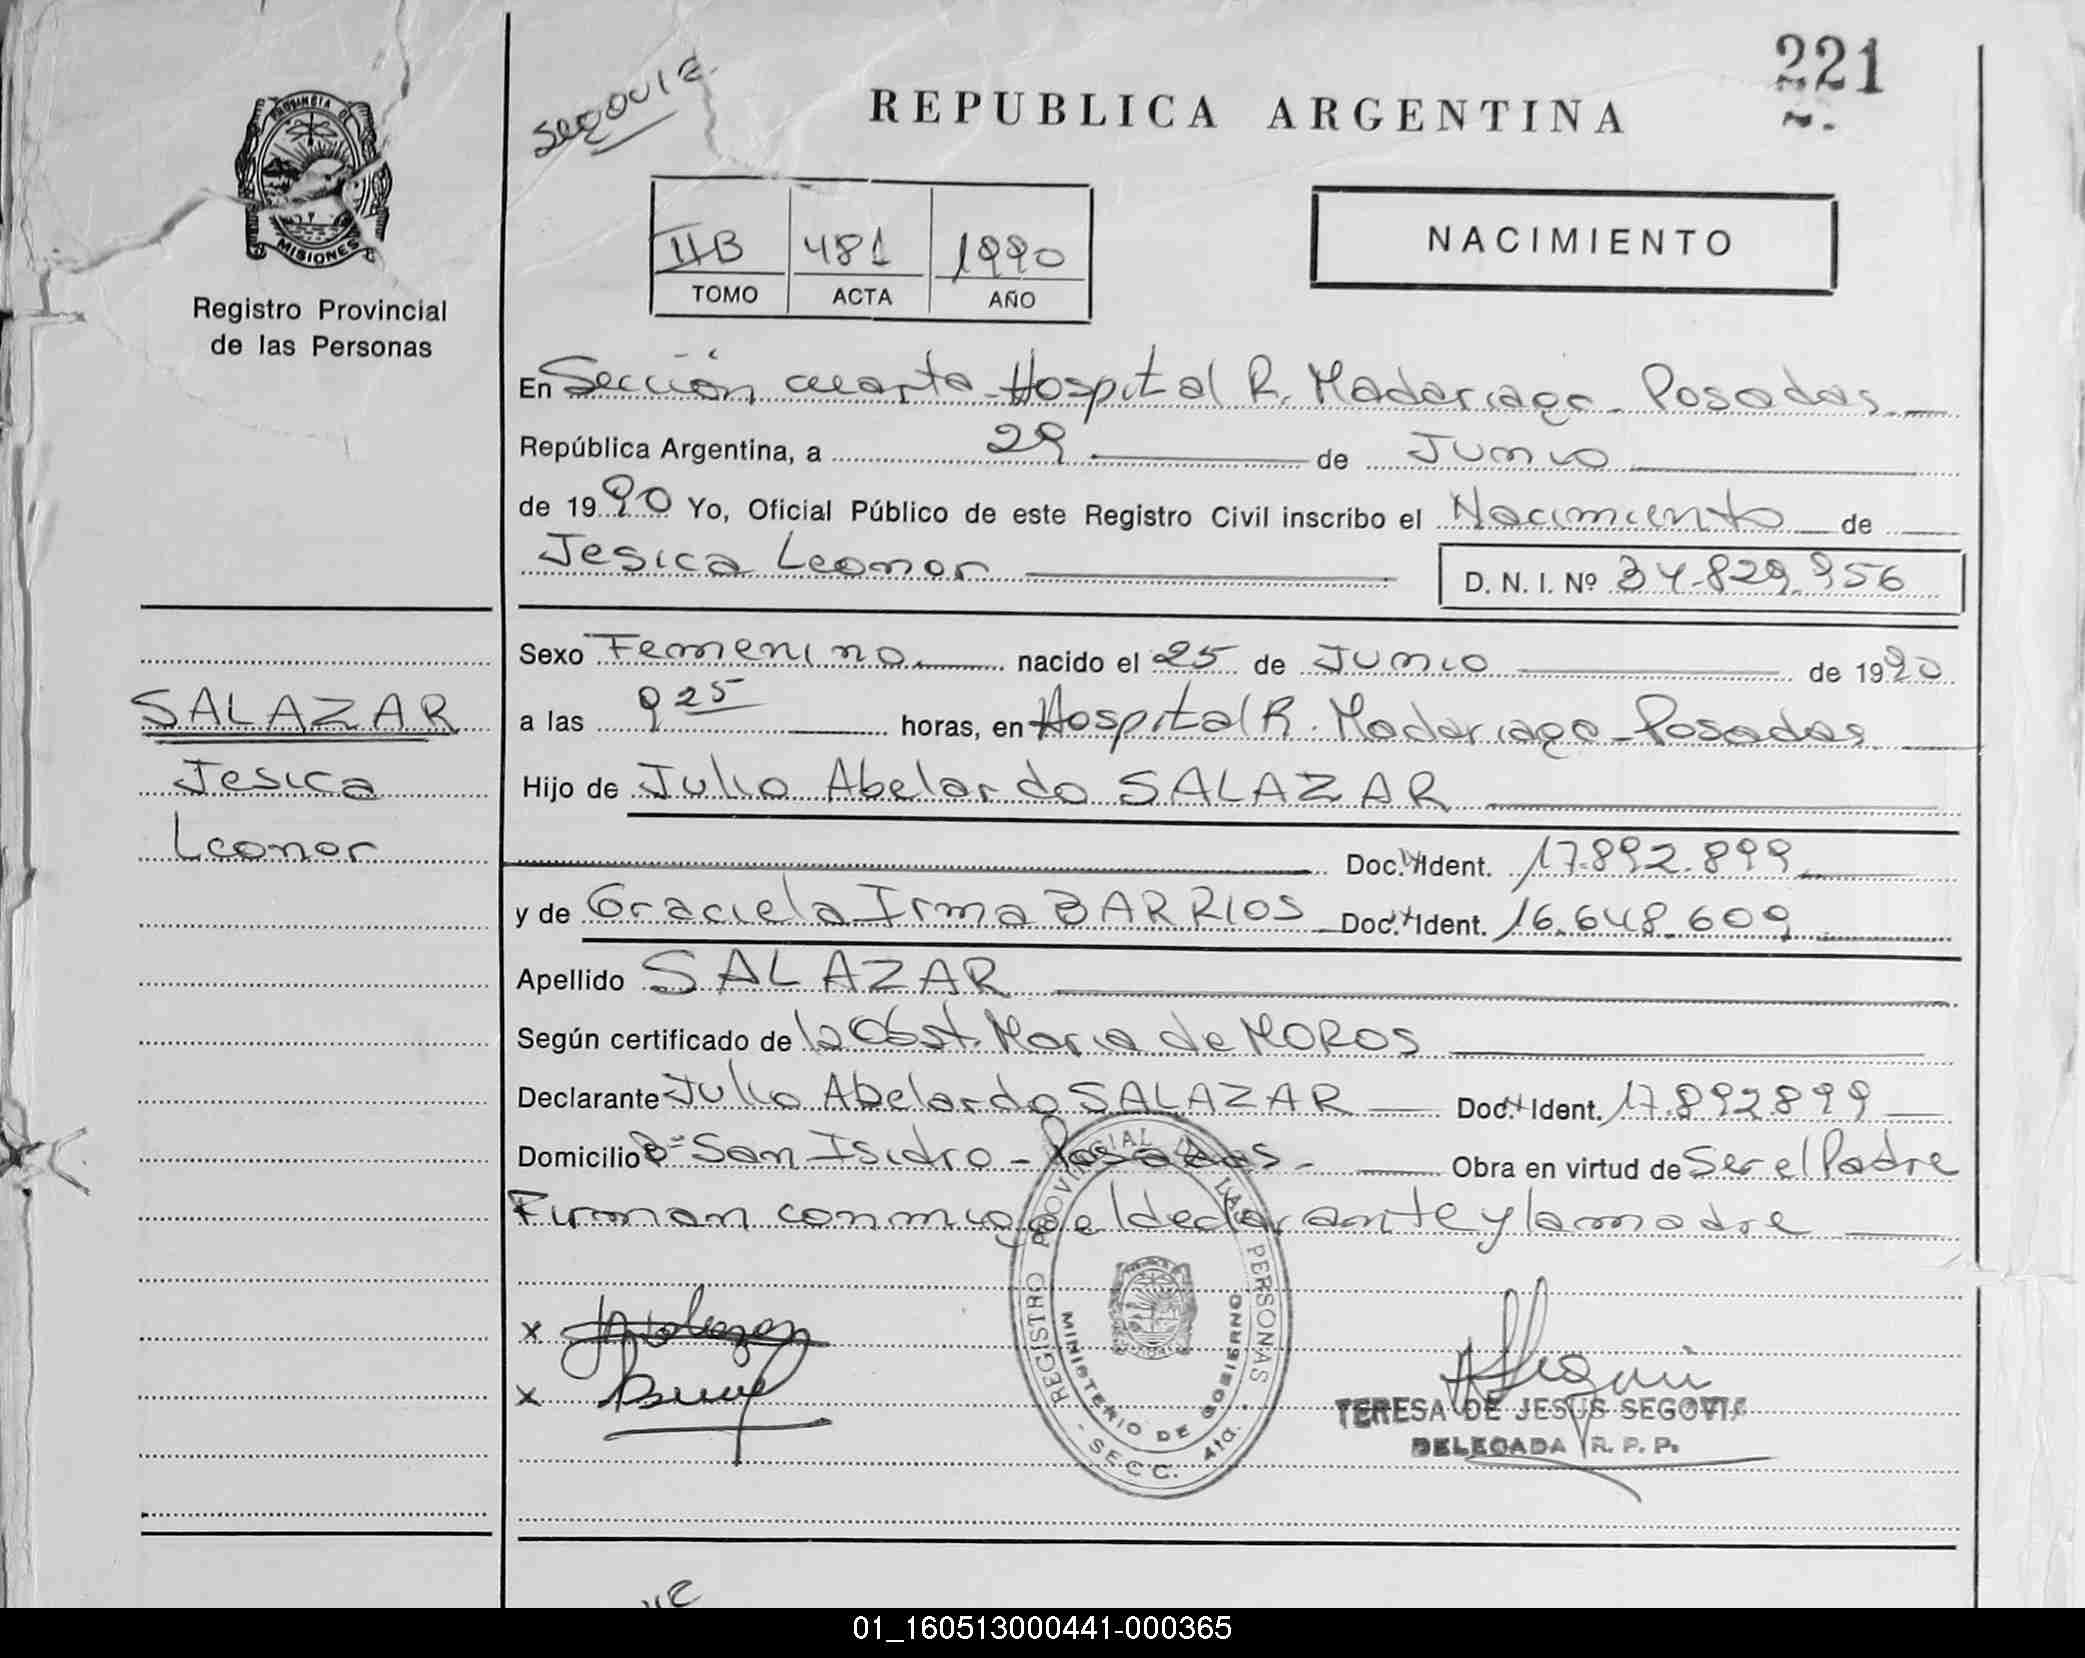 221
Segovia
REPUBLICA ARGENTINA
PROVINCIA DE
MISIONES
Registro Provincial
de las Personas
IIB 481 1990
TOMO ACTA AÑO
NACIMIENTO
En Sección cuarta-Hospital R. Madariaga-Posadas
República Argentina, a 29 de Junio
de 1990 Yo, Oficial Público de este Registro Civil inscribo el Nacimiento de
Jesica Leonor D. N. I. Nº 34.829.956
Sexo Femenino nacido el 25 de Junio de 1990
a las 9 25 horas, en Hospital R. Madariaga-Posadas
Hijo de Julio Abelardo SALAZAR
Doc. Ident. 17.892.899
y de Graciela Irma BARRIOS Doc. Ident. 16.648.609
Apellido SALAZAR
Según certificado de la Obst. Maria de MOROS
Declarante Julio Abelardo SALAZAR Doc. Ident. 17.892899
Domicilio Bº San Isidro - Posadas - Obra en virtud de Ser el Padre
Firman conmigo el declarante y la madre
SALAZAR
Jesica
Leonor
x
x
REGISTRO PROVINCIAL DE LAS PERSONAS
MINISTERIO DE GOBIERNO
- SECC. 4ta. -
TERESA DE JESUS SEGOVIA
DELEGADA R. P. P.
01_160513000441-000365